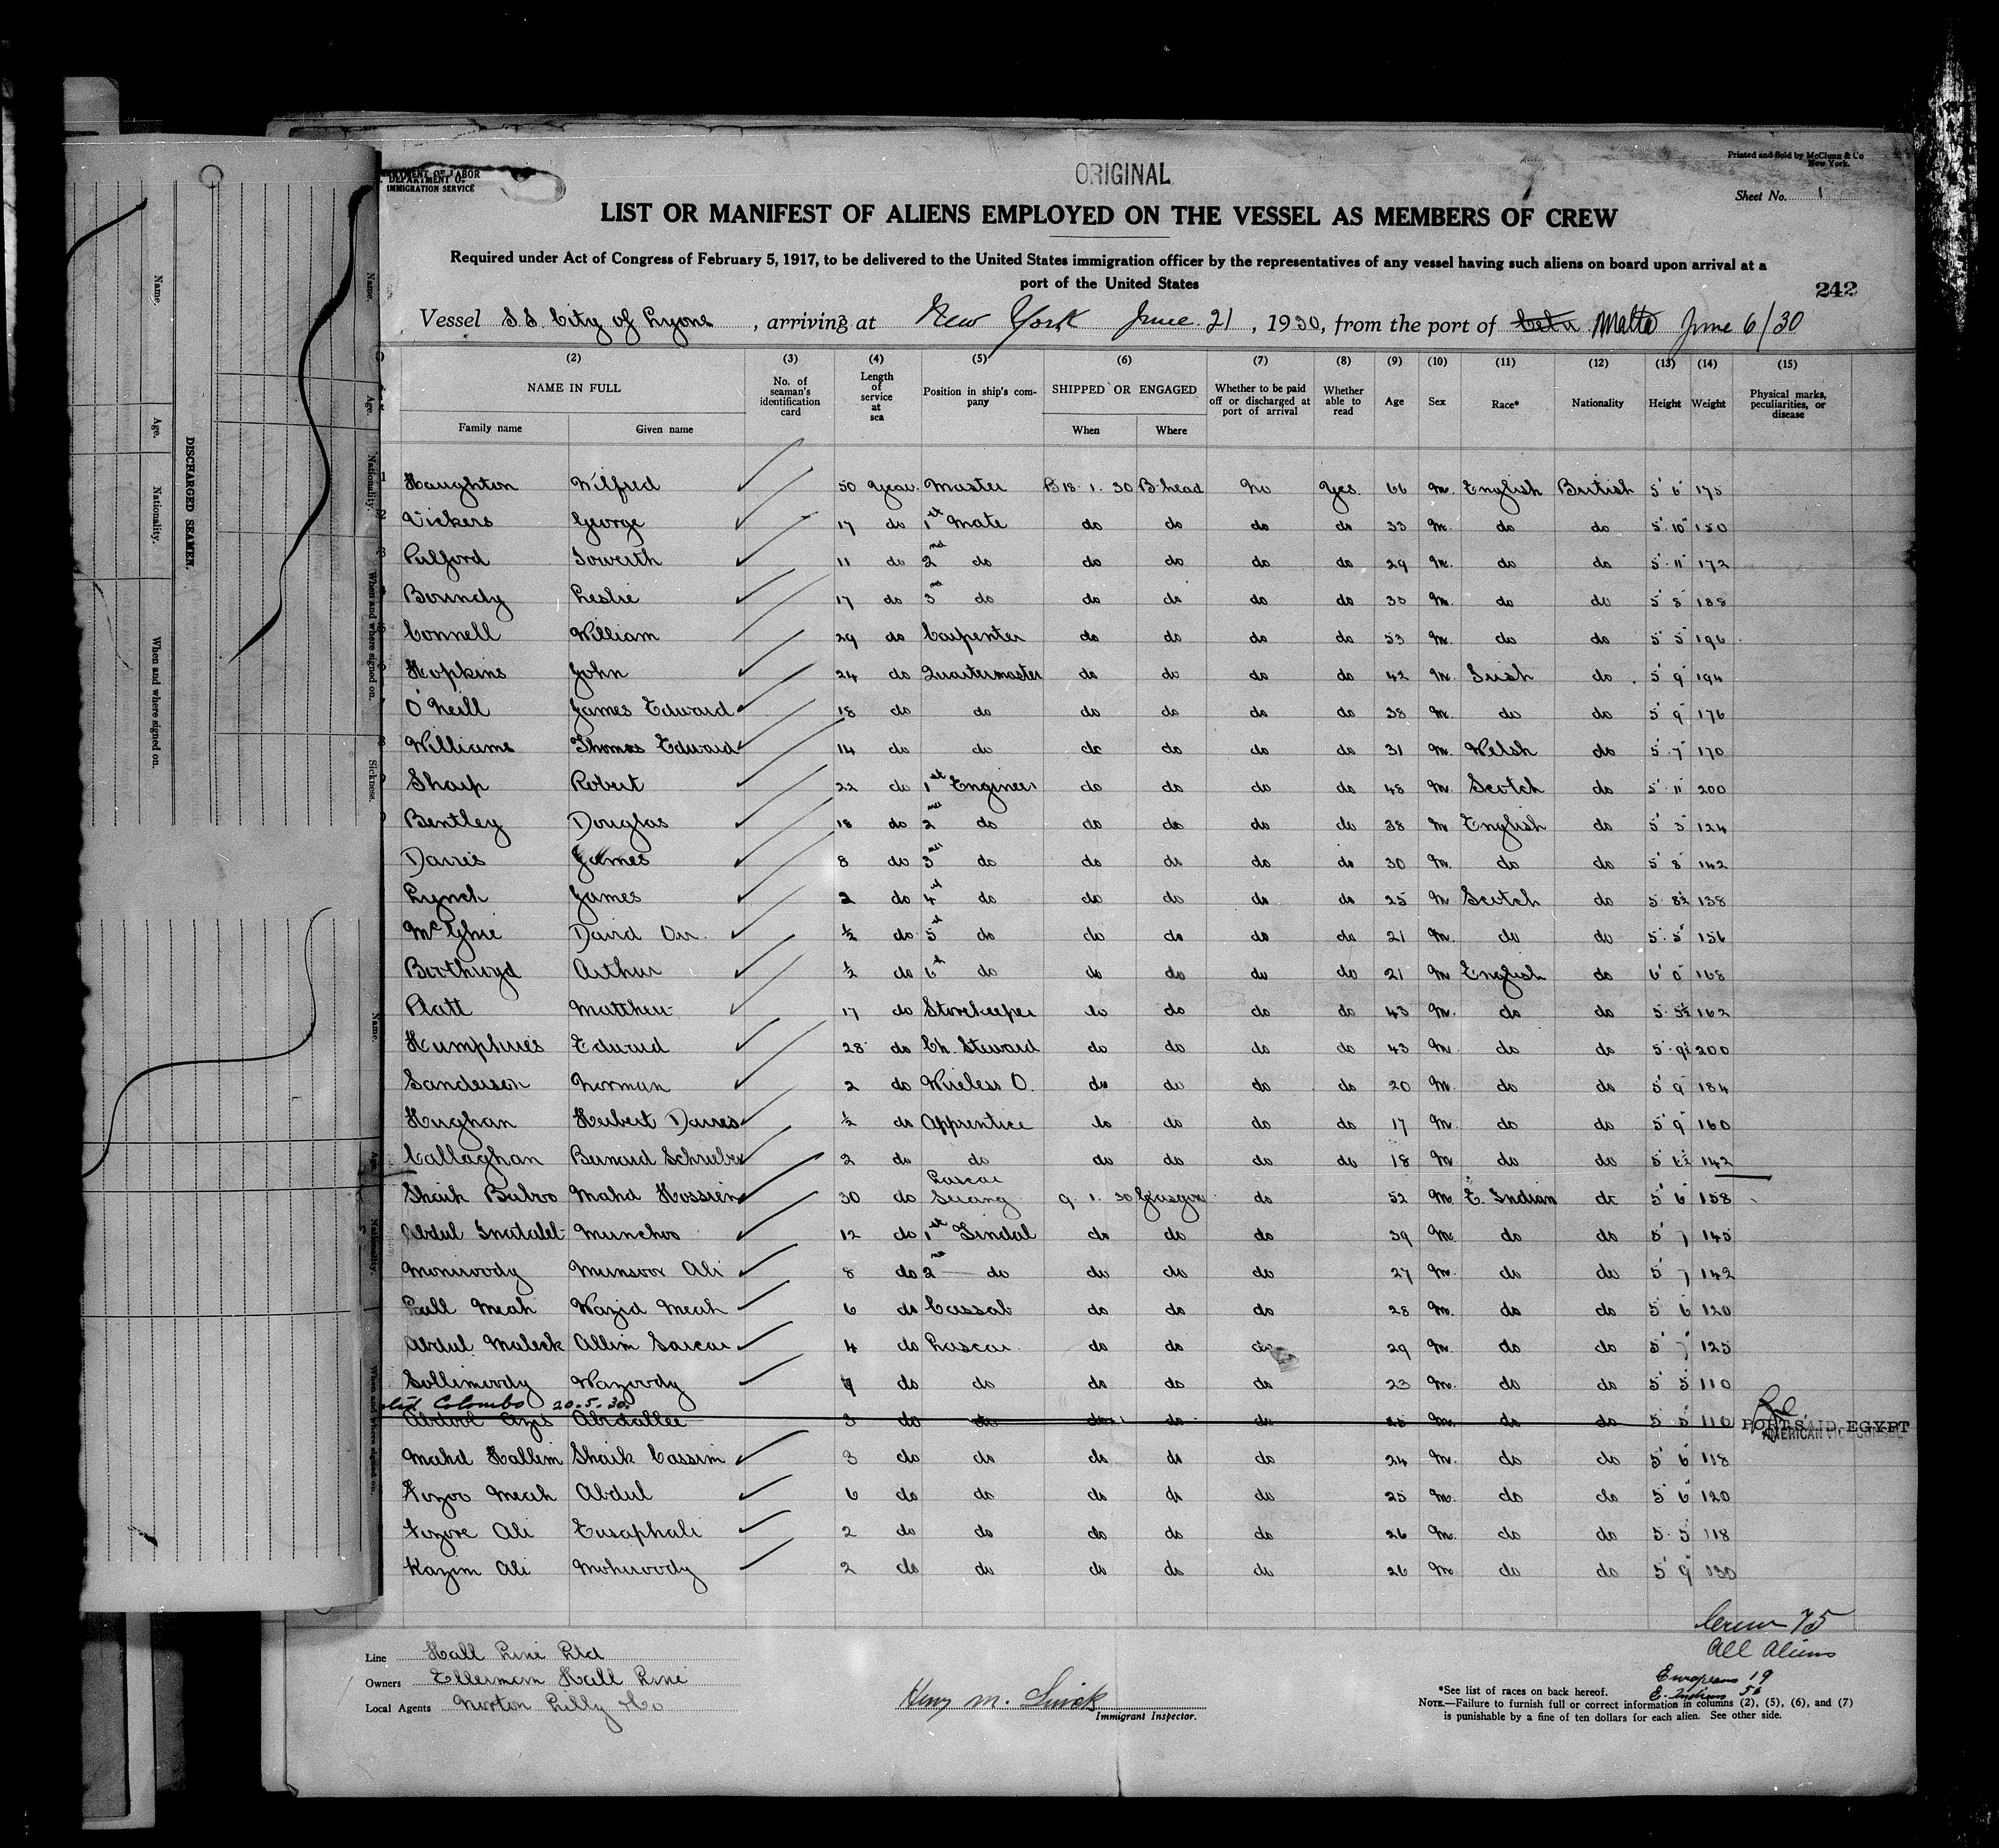 ORIGINAL
Printed and Sold by McClunn & Co
New York.
DEPARTMENT OF LABOR
IMMIGRATION SERVICE
Sheet No. 1
LIST OR MANIFEST OF ALIENS EMPLOYED ON THE VESSEL AS MEMBERS OF CREW
Required under Act of Congress of February 5, 1917, to be delivered to the United States immigration officer by the representatives of any vessel having such aliens on board upon arrival at a
port of the United States
242
Vessel S.S. City of Lyons, arriving at New York June 21, 1930, from the port of Malta June 6/30
(2) (3) (4) (5) (6) (7) (8) (9) (10) (11) (12) (13) (14) (15)
NAME IN FULL No. of seaman's identification card Length of service at sea Position in ship's company SHIPPED OR ENGAGED Whether to be paid off or discharged at port of arrival Whether able to read Age Sex Race* Nationality Height Weight Physical marks, peculiarities, or disease
Family name Given name When Where
Haughton Wilfred 50 years Master 18. 1. 30 B'head No Yes 66 M. English British 5' 6" 175
Vickers George 17 do 1st Mate do do do do 33 M. do do 5' 10" 150
Pulford Sowerth 11 do 2nd do do do do do 29 M. do do 5' 11" 172
Boundy Leslie 17 do 3rd do do do do do 33 M. do do 5' 8" 188
Connell William 29 do Carpenter do do do do 53 M. do do 5' 5" 196
Hopkins John 24 do Quartermaster do do do do 42 M. Irish do 5' 9" 194
O'Neill James Edward 18 do do do do do do 38 M. do do 5' 9" 176
Williams Thomas Edward 14 do do do do do do 31 M. Welsh do 5' 7" 170
Sharp Robert 22 do 1st Engineer do do do do 48 M. Scotch do 5' 11" 200
Bentley Douglas 18 do 2nd do do do do do 38 M English do 5' 3" 124
Davies James 8 do 3rd do do do do do 30 M. do do 5' 8" 142
Lynch James 2 do 4th do do do do do 25 M Scotch do 5' 8½ 138
McGhie David Orr 1/2 do 5th do do do do do 21 M. do do 5' 5" 156
Borthwyd Arthur 1/2 do 6th do do do do do 21 M English do 6' 0" 168
Platt Matthew 17 do Storekeeper do do do do 43 M. do do 5' 5½ 162
Humphries Edward 28 do Ch. Steward do do do do 43 M. do do 5' 9½ 200
Sanderson Norman 2 do Wireless O. do do do do 20 M. do do 5' 9" 184
Hughan Herbert Davies 1/2 do Apprentice do do do do 17 M. do do 5' 9" 160
Callaghan Bernard Schrieber 2 do do do do do do 18 M do do 5' 142
Shaik Babro Mahd Hossien 30 do Lascar Serang 9. 1. 30 Glasgow do 52 M. E. Indian do 5' 6" 158
Abdul Inatalet Munchoo 12 do 1st Tindal do do do 39 M. do do 5' 7 145
Moniroody Munsoor Ali 8 do 2nd do do do do 27 M. do do 5' 7 142
Lall Meah Wazid Meah 6 do Cassab do do do 28 M. do do 5' 6" 120
Abdul Maleck Allim Sarcar 4 do Lascar do do do 29 M. do do 5' 7" 125
Sollimoody Wazoody do do do do do 23 M. do do 5' 5" 110
Colombo 20.5.30
Abdool Azis Abdallee 3 do do do do do 25 M. do do 5' 5" 110
PORT SAID, EGYPT
AMERICAN VICE CONSUL
Mahd Hallim Shaik Cassim 3 do do do do do 24 M. do do 5' 6" 118
Fozoo Meah Abdul 6 do do do do do 25 M. do do 5' 6" 120
Fozore Ali Eusaphali 2 do do do do do 26 M. do do 5' 5" 118
Kazim Ali Mohiroody 2 do do do do do 26 M. do do 5' 9" 130
Crew 75
All Aliens
Europeans 19
E. Indians 56
Line Hall Line Ltd
Owners Ellerman Hall Line
Local Agents Norton Lilly & Co
Immigrant Inspector.
*See list of races on back hereof.
NOTE.—Failure to furnish full or correct information in columns (2), (5), (6), and (7)
is punishable by a fine of ten dollars for each alien. See other side.
DISCHARGED SEAMEN.
Name. Age. Nationality. When and where signed on.
Name. Age. Nationality. When and where signed on. Sickness.
Name. Age. Nationality. When and where signed on.